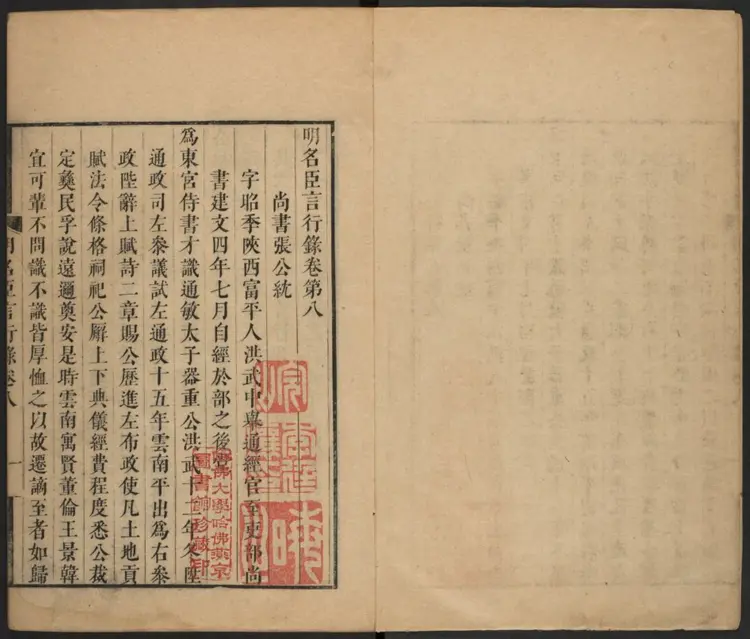 明名臣言行錄卷第八
尚書張公紞
字昭季陝西富平人洪武中舉通經官至吏部尚
書建文四年七月自經於部之後堂
為東宮侍書才識通敏太子器重公洪武十二年冬陞
通政司左參議試左通政十五年雲南平出為右參
政陛辭上賦詩二章賜公歷進左布政使凡土地貢
賦法令條格祠祀公廨上下典儀經費程度悉公裁
定彝民孚說遠邇奠安是時雲南寓賢董倫王景韓
宜可輩不問識不識皆厚恤之以故遷謫至者如歸
明名臣言行錄卷八
一
哈佛大學哈佛燕京
圖書館珍藏印